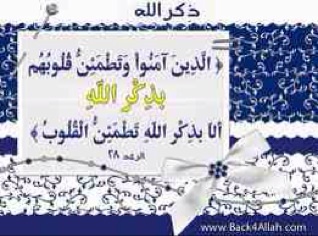 ذكر الله
﴿ الَّذِينَ آمَنُواْ وَتَطْمَئِنُّ قُلُوبُهُم
بِذِكْرِ اللّهِ
أَلاَ بِذِكْرِ اللّهِ تَطْمَئِنُّ الْقُلُوبُ ﴾
الرعد ٢٨
www.Back4Allah.com